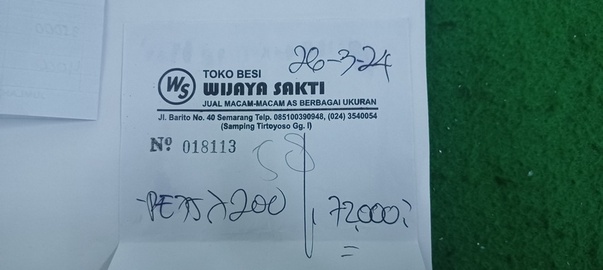 26-3-24
WS
TOKO BESI
WIJAYA SAKTI
JUAL MACAM-MACAM AS BERBAGAI UKURAN
Jl. Barito No. 40 Semarang Telp. 085100390948, (024) 3540054
(Samping Tirtoyoso Gg. I)
Nº 018113
200 72.000